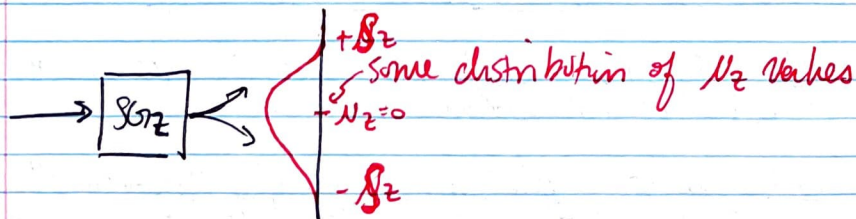 +S_z
some distribution of μ_z values
SG_z
μ_z=0
-S_z